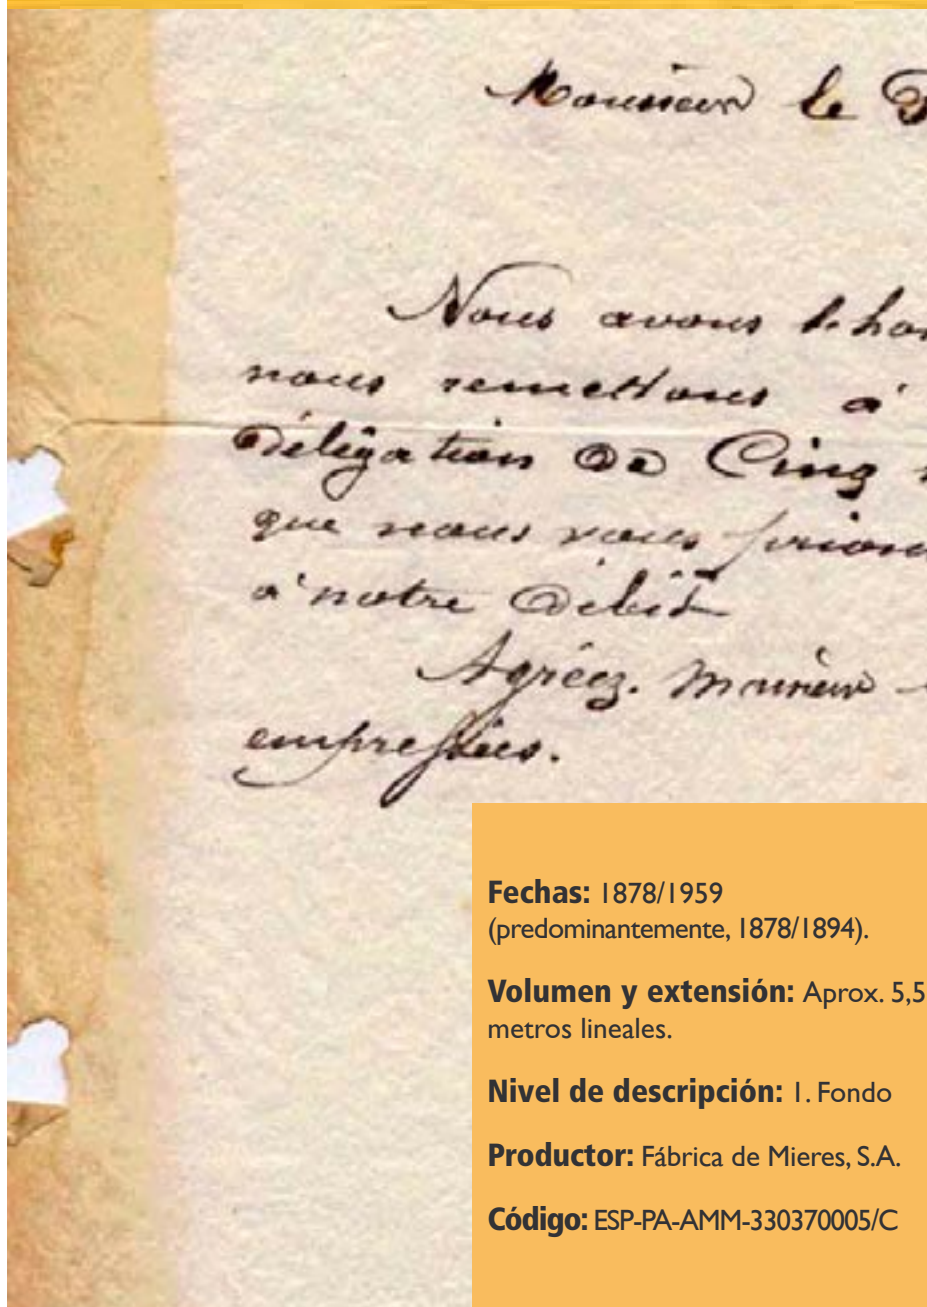 Monsieur le
Nous avons l'hon
nous remettons à
Délégation De Cinq
que nous vous prions
à notre Débit
Agréez. Monsieur
empressées.
Fechas: 1878/1959
(predominantemente, 1878/1894).
Volumen y extensión: Aprox. 5,5
metros lineales.
Nivel de descripción: 1. Fondo
Productor: Fábrica de Mieres, S.A.
Código: ESP-PA-AMM-330370005/C